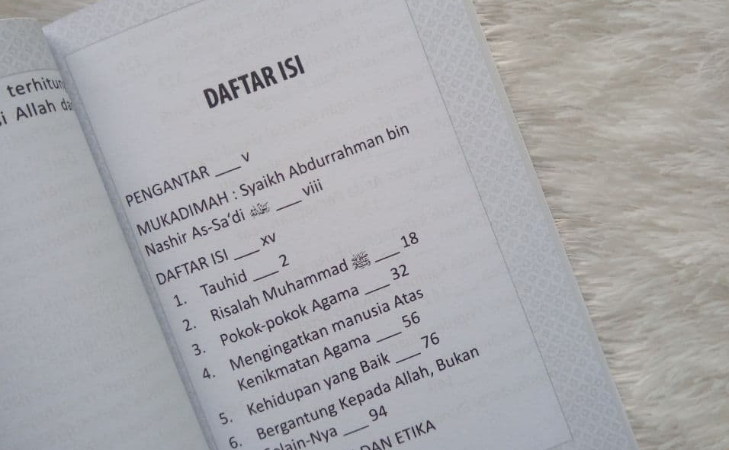 terhitun
i Allah da
DAFTAR ISI
PENGANTAR ___ v
MUKADIMAH : Syaikh Abdurrahman bin
Nashir As-Sa'di ___ viii
DAFTAR ISI ___ xv
1. Tauhid ___ 2
2. Risalah Muhammad ﷺ ___ 18
3. Pokok-pokok Agama ___ 32
4. Mengingatkan manusia Atas
Kenikmatan Agama ___ 56
5. Kehidupan yang Baik ___ 76
6. Bergantung Kepada Allah, Bukan
lain-Nya ___ 94
DAN ETIKA